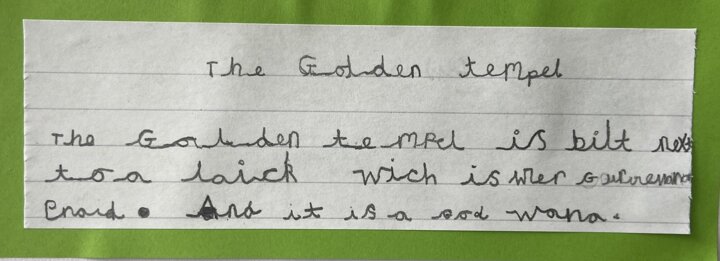 The Golden tempel
The Goulden tempel is bilt next
to a laick wich is wer
And it is a wana.